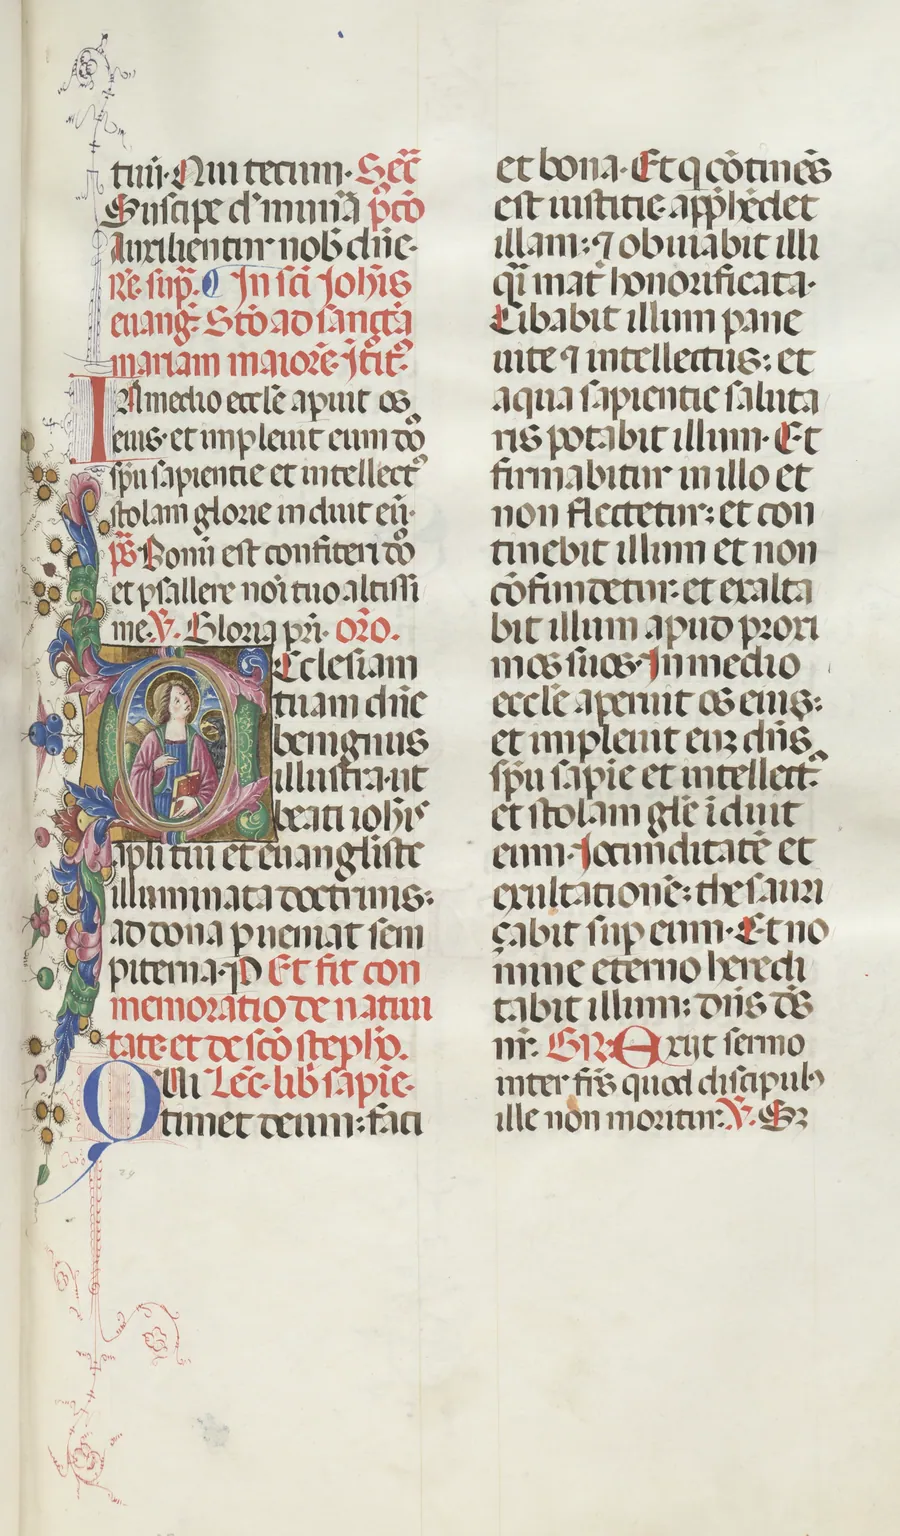 tuũ. Qui tecum. Secͬ
Suscipe dͤ munĩa p̃co
Auxilientur nob̃ dñe.
Re. sup̃. In sc̃i Joh̃is
euang̃. Stõ ad sancta
mariam maiorẽ. Ĩtit᷑.
IN medio eccl̃e apuit os
eius. et impleuit eum dõ
sp̃u sapientie et intellectꝰ
stolam glorie induit eũ.
p̃s Bonũ est confiteri dõ
et psallere nõi tuo altissi
me. V̓. Gloria pr̃i. or̃o.
Ecclesiam
tuam dñe
benignus
illustra. ut
beati ioh̃is
apl̃i tui et euangliste
illuminata doctrinis:
ad dona pueniat sem
piterna. P Et fit con
memoratio de natiui
tate. et de sc̃o steph̃o.
Qui Lec̃. lib̃ sapĩe.
timet deum: faci
et bona. Et q cõtinẽs
est iustitie app̃hẽdet
illam: ⁊ obuiabit illi
q̃i mat̃ honorificata.
Cibabit illum pane
uite ⁊ intellectus: et
aqua sapientie saluta
ris potabit illum. Et
firmabitur in illo et
non flectetur: et con
tinebit illum et non
cõfundetur. et exalta
bit illum apud proxi
mos suos. In medio
eccl̃e aperuit os eius:
et impleuit euꝫ dñs
sp̃u sapĩe et intellectꝰ
et stolam gl̃e ĩduit
eum. Jocunditatẽ et
exultationẽ: thesauri
çabit sup eum. Et no
mine eterno heredi
tabit illum: dñs dẽs
nr̃. GR. Exijt sermo
inter fr̃es quod discipulꝰ
ille non moritur. V̓. Sꝫ